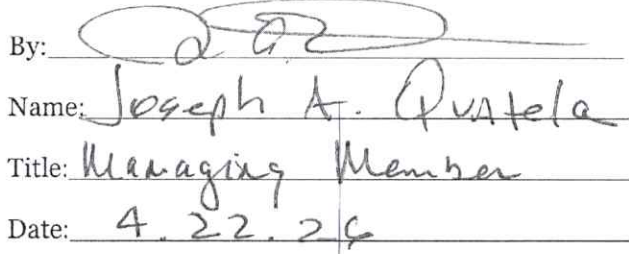 By:
Name: Joseph A. Quatela
Title: Managing Member
Date: 4.22.26